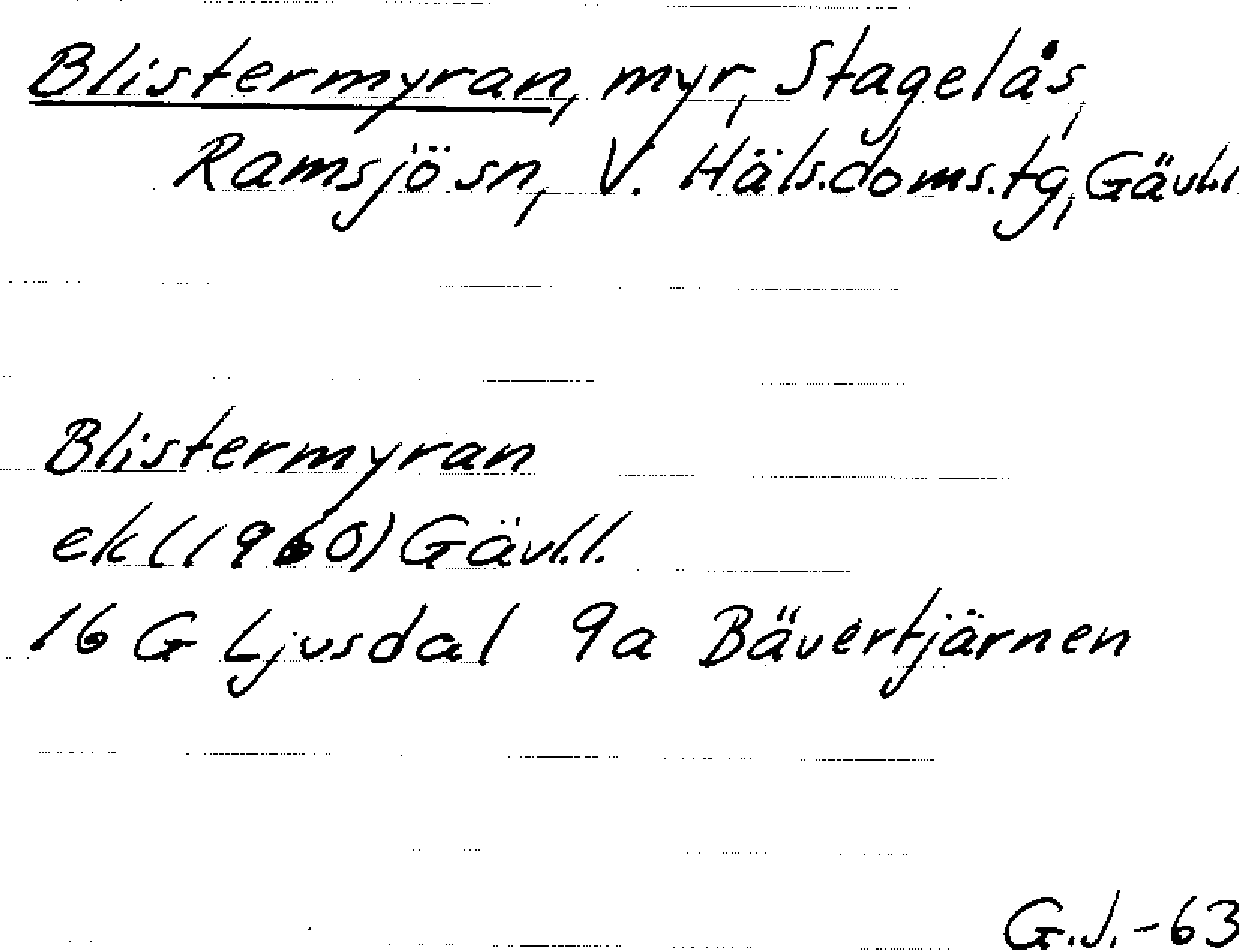 Blistermyran, myr, Stagelås,
Ramsjö sn, V. Häls.doms.tg, Gävl.l.
Blistermyran
ek (1960) Gävl.l.
16 G Ljusdal 9a Bävertjärnen
G.J.-63